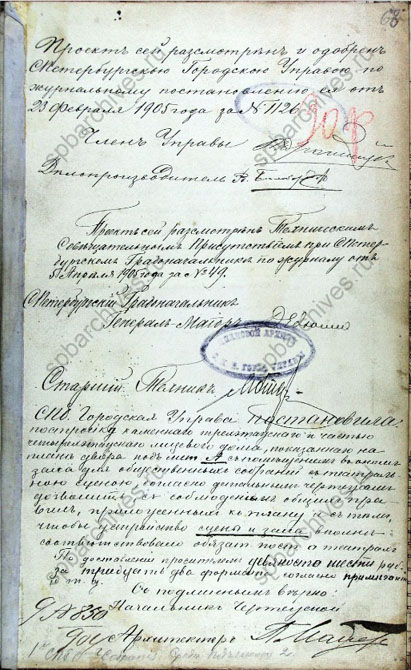 68
Проектъ сей разсмотрѣнъ и одобренъ
С.Петербургскою Городскою Управою по
журнальному постановленію ея отъ
23 Февраля 1905 года за № 1126
Членъ Управы
Дѣлопроизводитель
Проектъ сей разсмотрѣнъ Техническимъ
Совѣщательнымъ Присутствіемъ при С.Петер-
бургскомъ Градоначальникѣ по журналу отъ
5 Апрѣля 1905 года за № 49.
С.Петербургскій Градоначальникъ
Генералъ-Маіоръ Дедюлинъ
Старшій Техникъ
СПб. Городская Управа постановила:
постройку каменнаго трехэтажнаго и частью
четырехэтажнаго лицеваго дома, показаннаго на
планѣ двора подъ лит. А, съ
зала для общественныхъ собраній съ театраль-
ною сценою, согласно детальнымъ чертежамъ
дозволить съ соблюденіемъ общихъ пра-
вилъ, къ плану, и съ тѣмъ,
чтобы устройство сцены и зала вполнѣ
соотвѣтствовало обязат. пост. о театрахъ
По доставленіи просителемъ девяносто шести руб.
за тридцать два формата, согласно
Съ подлиннымъ вѣрно:
Начальникъ Чертежной
Архитекторъ
spbarchives.ru